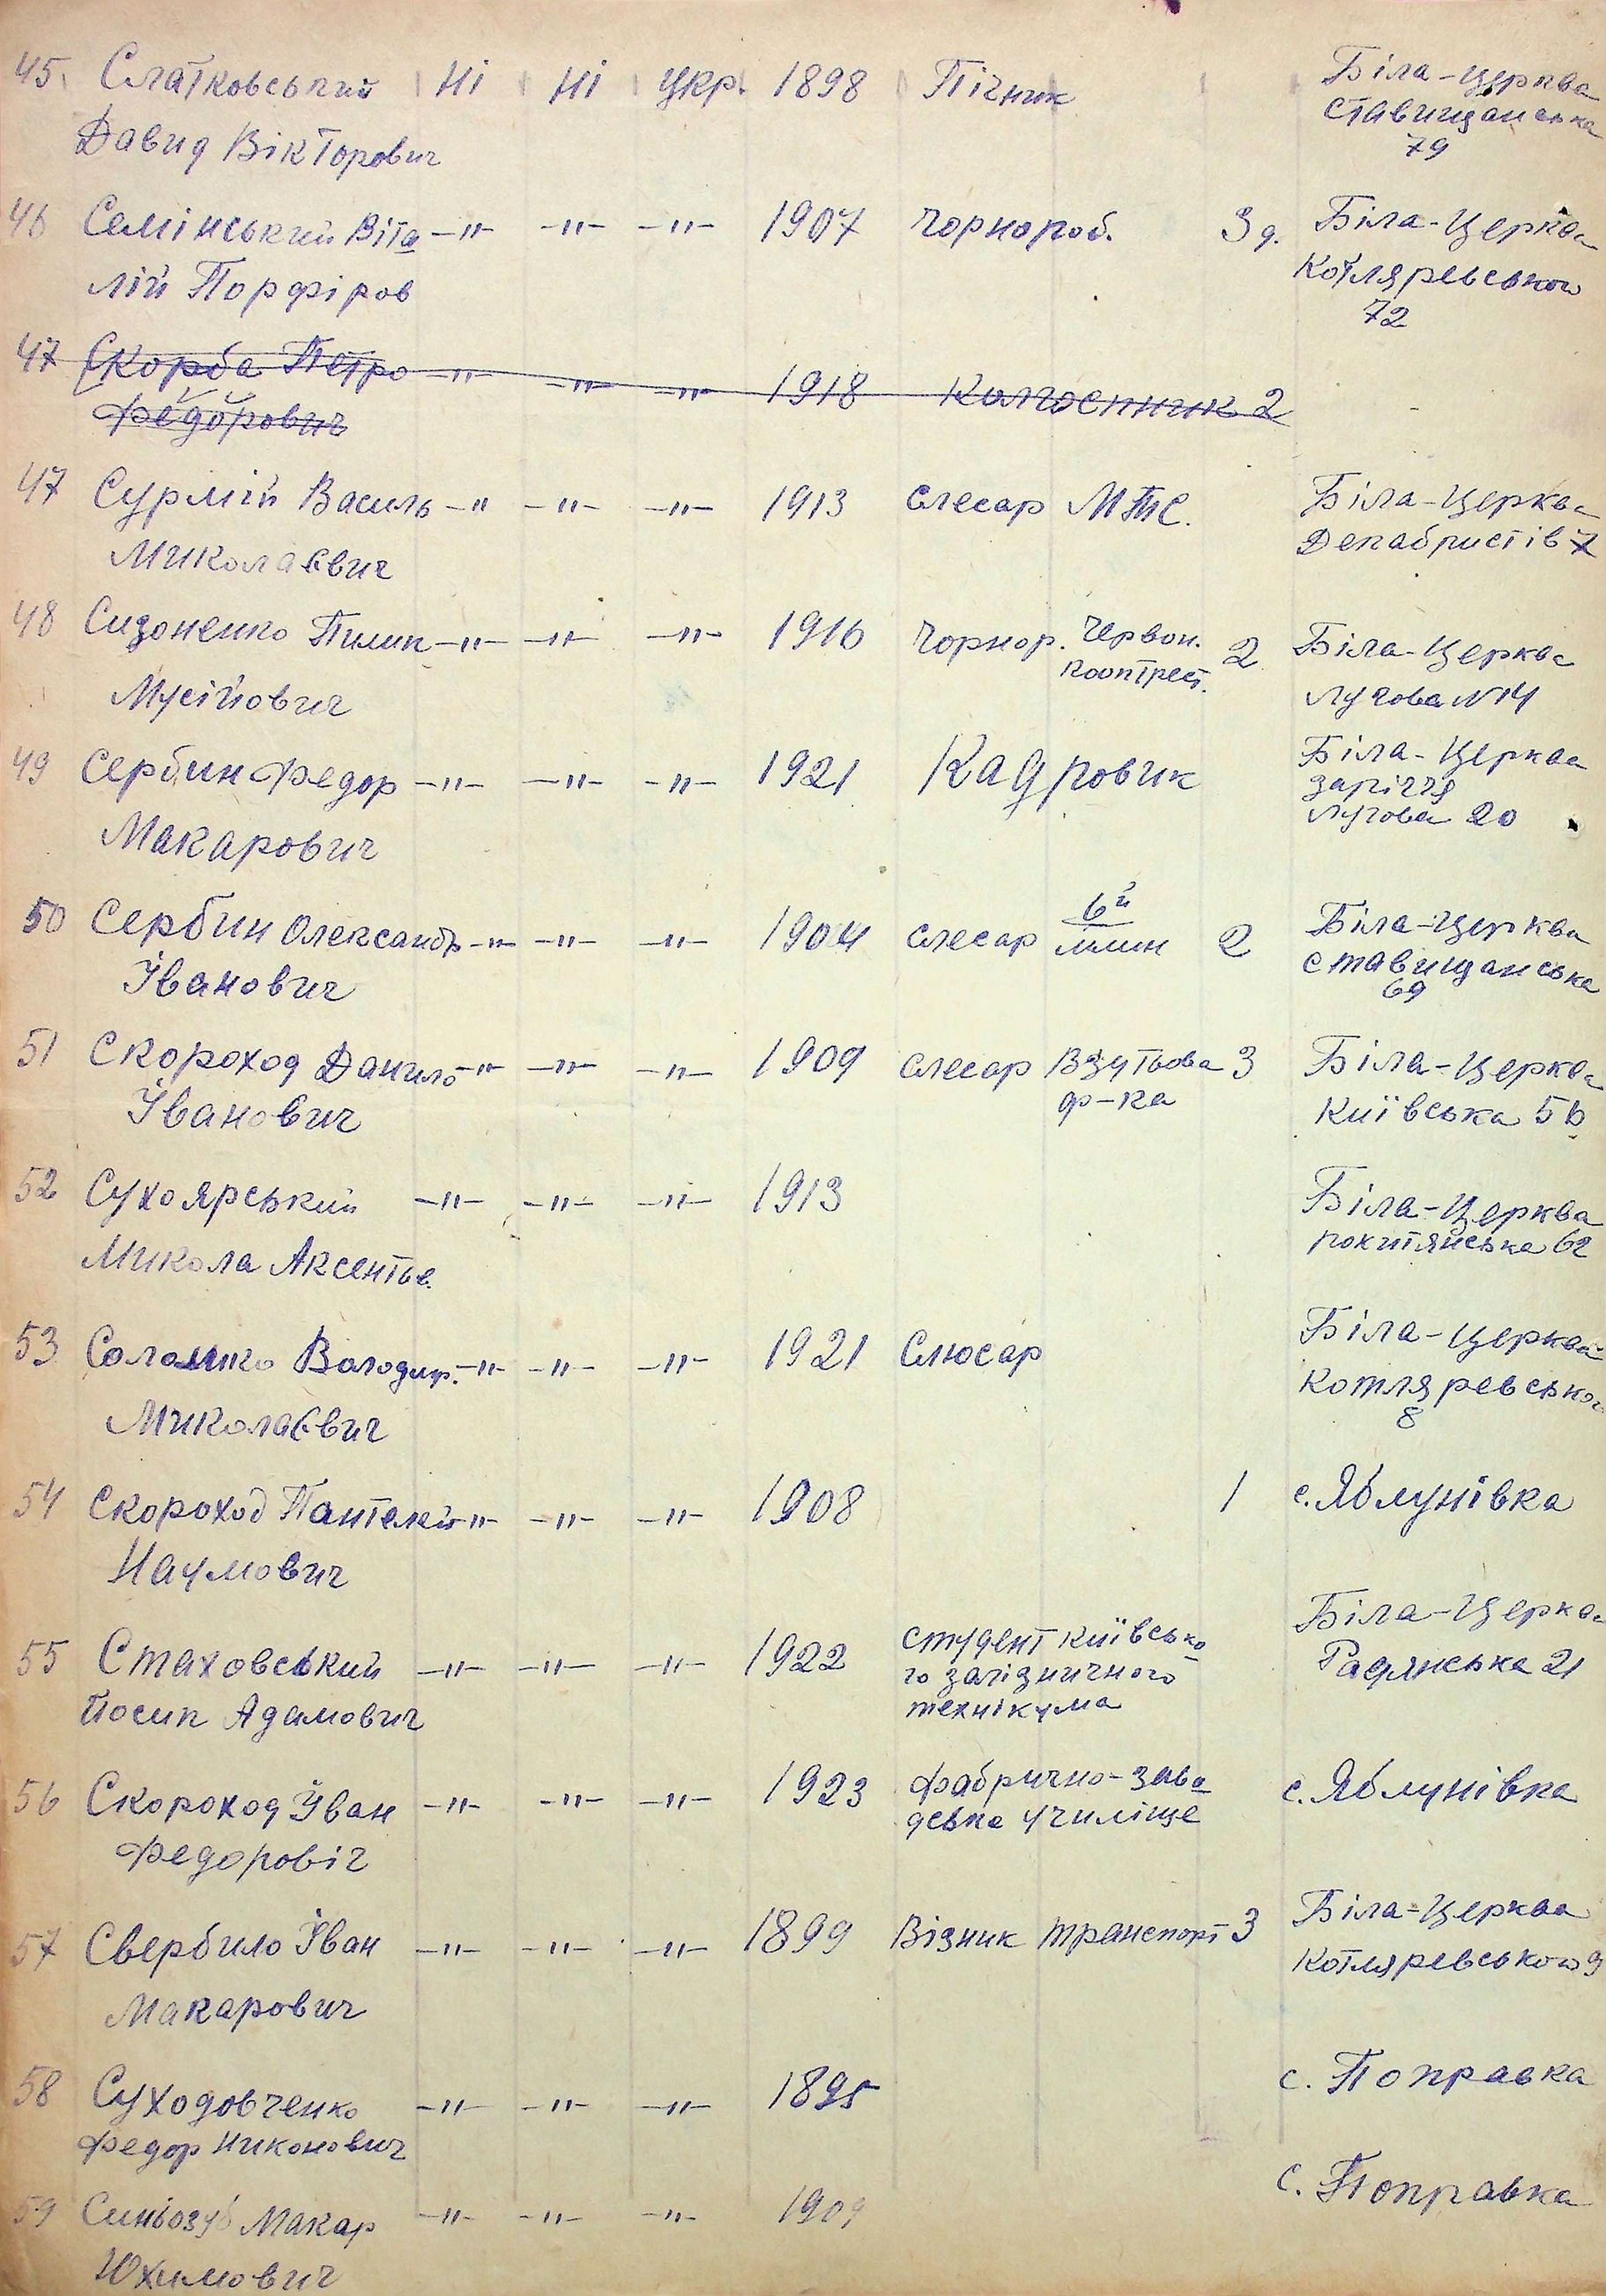 45. Слатковський Ні Ні Укр. 1898 Пічник Біла-Церква
Давид Вікторович Ставищанська
79
46 Семінський Віта -"- -"- -"- 1907 Чорнороб. 3 д. Біла-Церква
лій Порфіров Котляревського
72
47 Скорба Петро -"- -"- -"- 1918 Колгоспник 2
Федорович
47 Сурмій Василь -"- -"- -"- 1913 Слесар МТС. Біла-Церква
Миколаєвич Декабристів 7
48 Сидоненко Пилип -"- -"- -"- 1916 Чорнор. Червон. 2 Біла-Церква
Мусійович Кооптрест. Лугова N14
49 Сербин Федор -"- -"- -"- 1921 Кадровик Біла-Церква
Макарович заріччя
Лугова 20
50 Сербин Олександр -"- -"- -"- 1904 Слесар 6й млин 2 Біла-Церква
Іванович Ставищанська
69
51 Скороход Данило -"- -"- -"- 1909 Слесар Взутьова 3 Біла-Церква
Іванович ф-ка Київська 56
52 Сухоярський -"- -"- -"- 1913 Біла-Церква
Микола Аксентьв. рокитянська 62
53 Соломко Володир. -"- -"- -"- 1921 Слюсар Біла-Церква
Миколаєвич Котляревського
8
54 Скороход Пантелей -"- -"- -"- 1908 1 с. Яблунівка
Наумович
55 Стаховський -"- -"- -"- 1922 студент київсько Біла-Церква
Йосип Адамович го залізничного Радянська 21
технікума
56 Скороход Іван -"- -"- -"- 1923 Фабрично-заво с. Яблунівка
Федоровіч дська училіще
57 Свербило Іван -"- -"- -"- 1899 Візник транспорт 3 Біла-Церква
Макарович Котляревського 9
58 Суходовченко -"- -"- -"- 1895 с. Поправка
Федор Никонович
59 Синьозуб Макар -"- -"- -"- 1909 с. Поправка
Юхимович